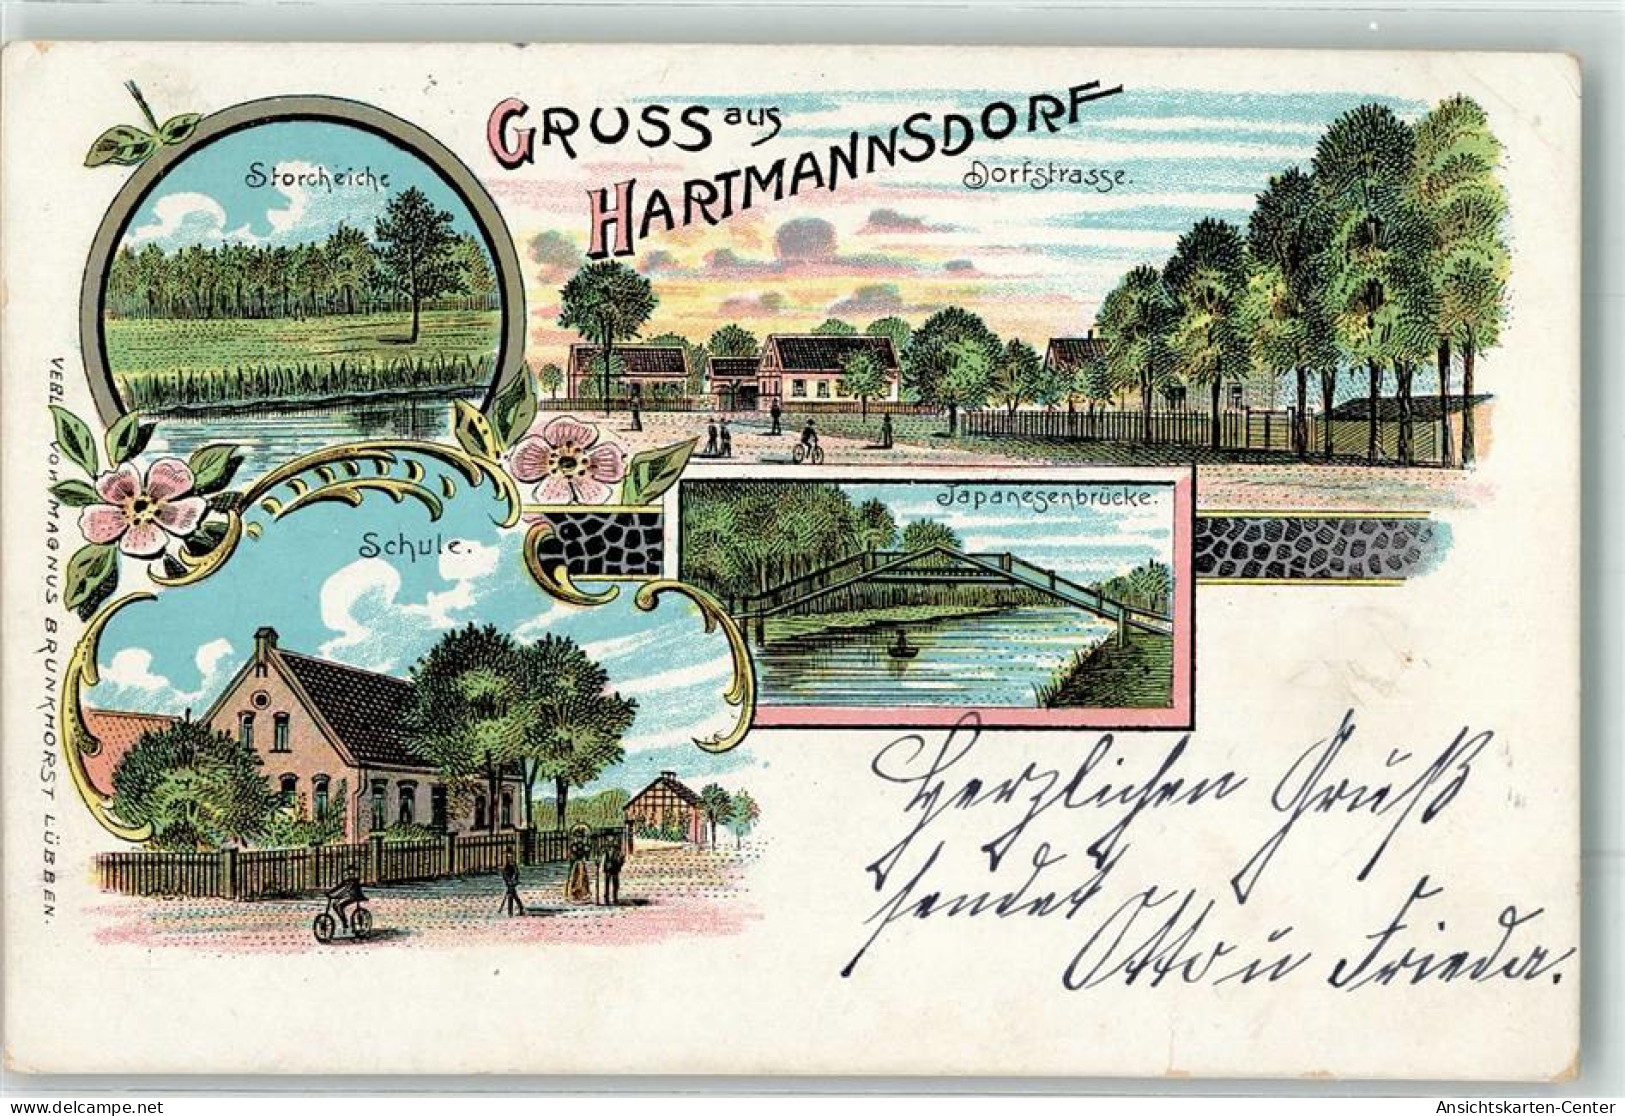 GRUSS aus
HARTMANNSDORF
Storcheiche
Dorfstrasse.
Schule.
Japanesenbrücke.
VERL. VON MAGNUS BRUNKHORST LÜBBEN.
Herzlichen Gruß
sendet
Otto u Frieda.
Ansichtskarten-Center